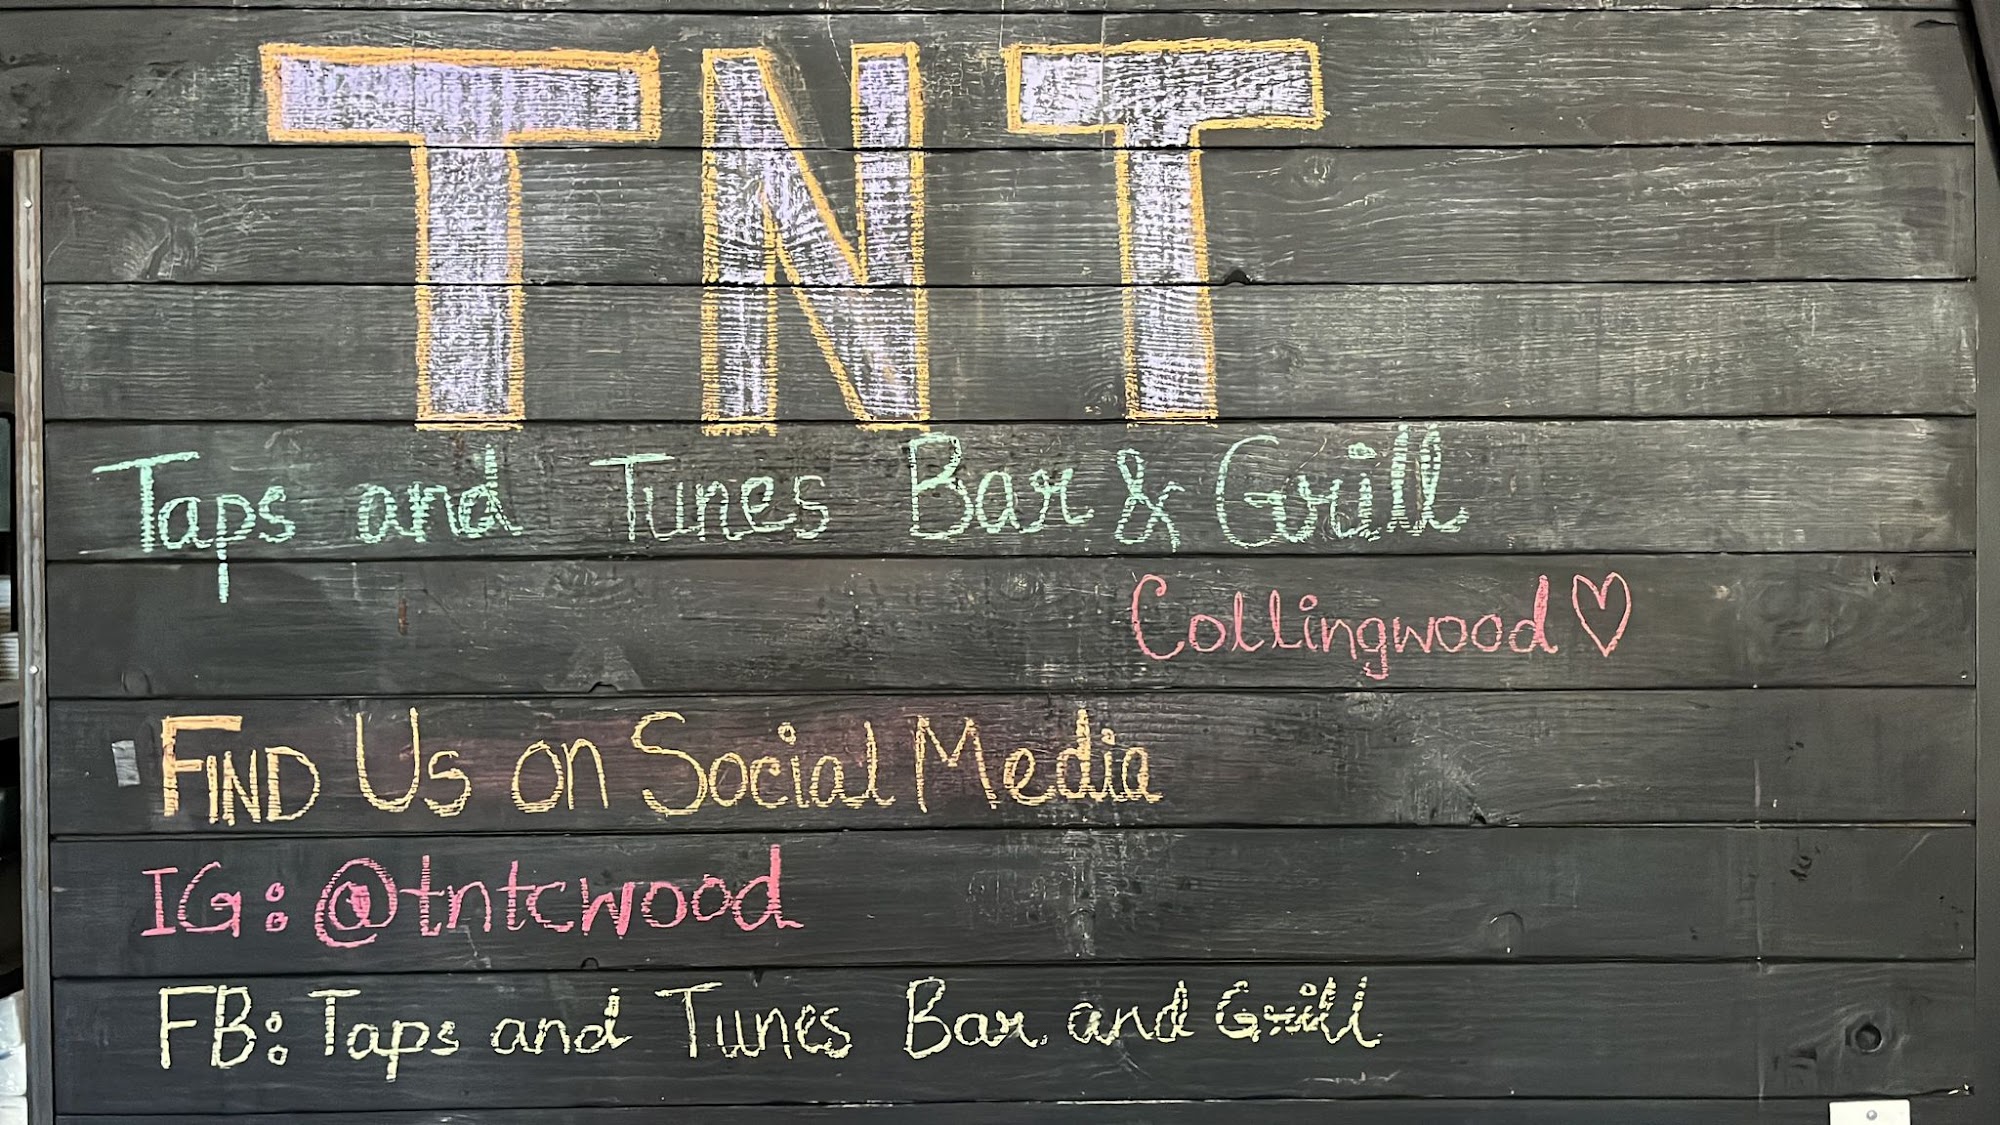 TNT
Taps and Tunes Bar & Grill
Collingwood
FIND Us on Social Media
IG: @tntcwood
FB: Taps and Tunes Bar and Grill